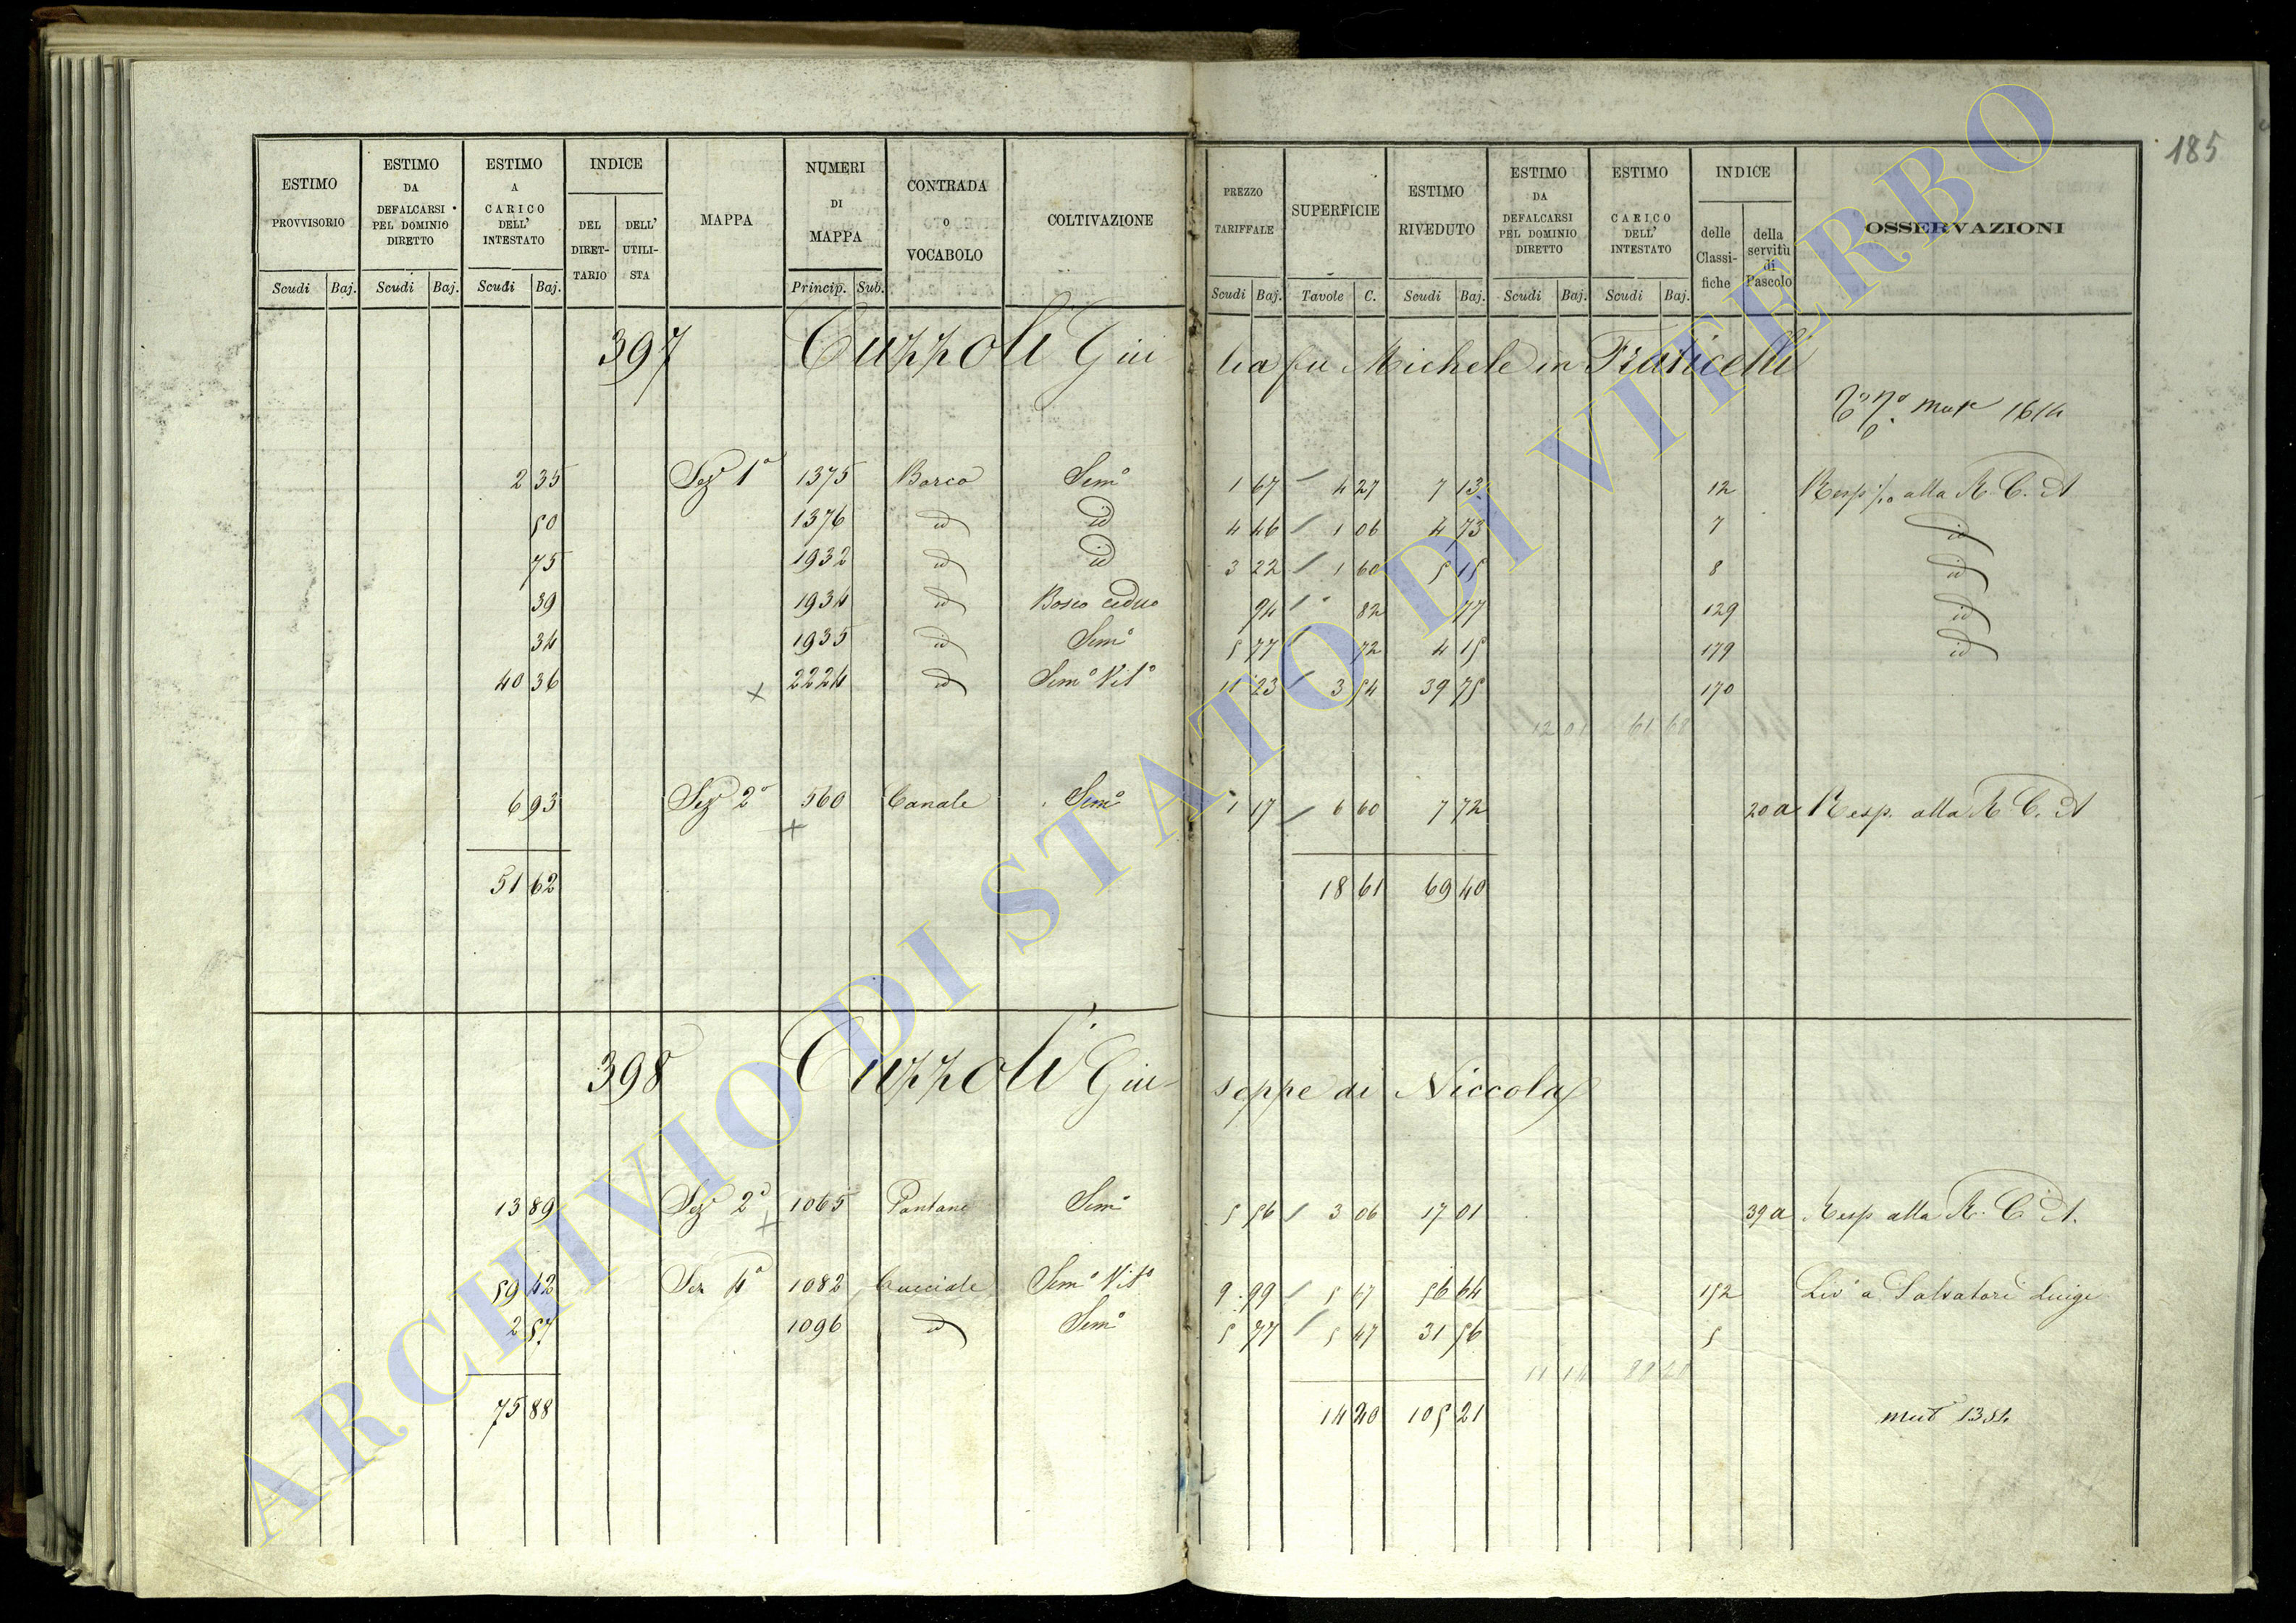 185
ESTIMO PROVVISORIO | ESTIMO DA DEFALCARSI PEL DOMINIO DIRETTO | ESTIMO A CARICO DELL' INTESTATO | INDICE DEL DIRET-TARIO | DELL' UTILI-STA | MAPPA | NUMERI DI MAPPA | CONTRADA o VOCABOLO | COLTIVAZIONE | PREZZO TARIFFALE | SUPERFICIE | ESTIMO RIVEDUTO | ESTIMO DA DEFALCARSI PEL DOMINIO DIRETTO | ESTIMO CARICO DELL' INTESTATO | INDICE delle Classi-fiche | della servitù di Pascolo | OSSERVAZIONI
Scudi Baj. | Scudi Baj. | Scudi Baj. | Princip. Sub. | Scudi Baj. | Tavole C. | Scudi Baj. | Scudi Baj. | Scudi Baj.
397 Cuzzoli Giulia fu Michele in Fraticelli
1614
2 35 Sez 1a 1375 Barco Semo 1 67 4 27 7 13 12 Resp alla R. C. A
50 1376 id id 4 46 1 06 4 73 7 id
75 1932 id id 3 22 1 60 5 15 8 id
39 1934 id Bosco ceduo 94 82 77 129 id
34 1935 id Semo 5 77 72 4 15 179 id
40 36 2224 id Semo Vito 11 23 3 54 39 75 170
12 01 61 68
6 93 Sez 2a 560 Canale Semo 1 17 6 60 7 72 20 a Resp. alla R C. A
51 62 18 61 69 40
398 Cuzzoli Giuseppe di Niccola
13 89 Sez 2a 1065 Pantane Semo 5 56 3 06 17 01 39 a Resp alla R. C A.
59 42 Sez 4a 1082 Cucciale Semo Vito 9 99 5 67 56 64 152 Livo a Salvatori Luigi
2 57 1096 id Semo 5 77 5 47 31 56 5
11 14
75 88 14 20 105 21 mut 1354
ARCHIVIO DI STATO DI VITERBO